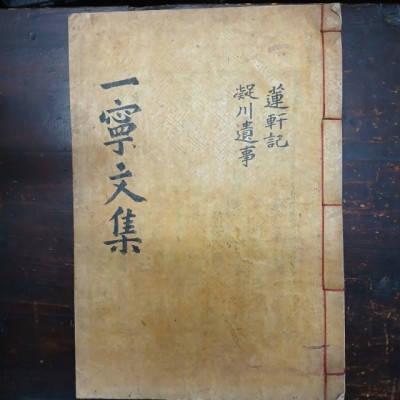 一寧文集
蓮軒記
凝川遺事